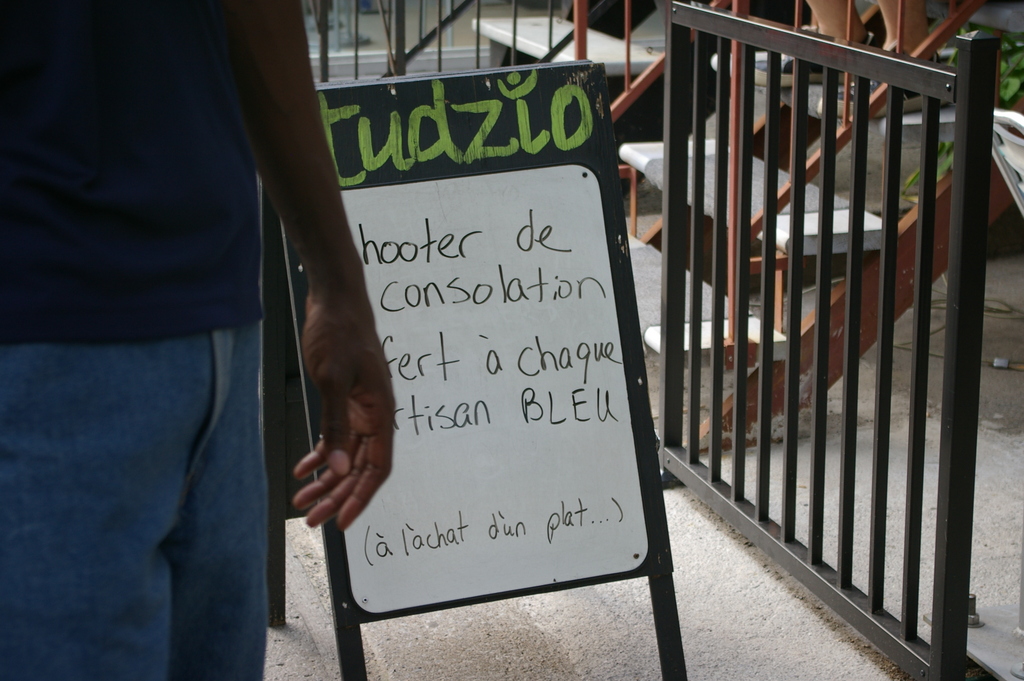 tudzio
hooter de
consolation
fert à chaque
rtisan BLEU
(à l'achat d'un plat...)